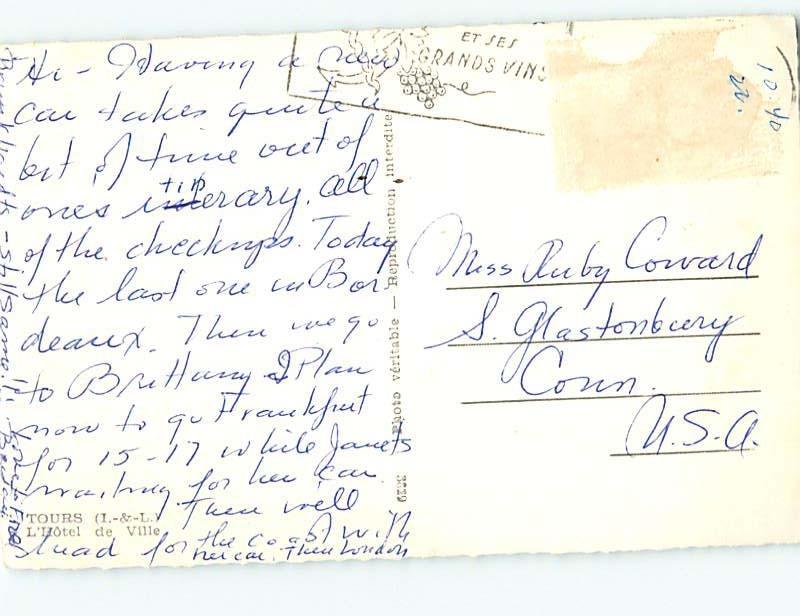 Hi - Having a new
car takes quite a
bit of time out of
ones itinerary. All
of the checkups. Today
the last one in Bor
deaux. Then we go
to Brittany I Plan
now to go Frankfurt
for 15-17 while Janets
waiting for her car.
Then we'll
head for the coast with
her car. Then London
TOURS (I.-&-L.)
L'Hôtel de Ville
Photo véritable — Reproduction interdite
ET SES
GRANDS VINS
10.40
Miss Ruby Coward
S. Glastonbury
Conn.
U.S.A.